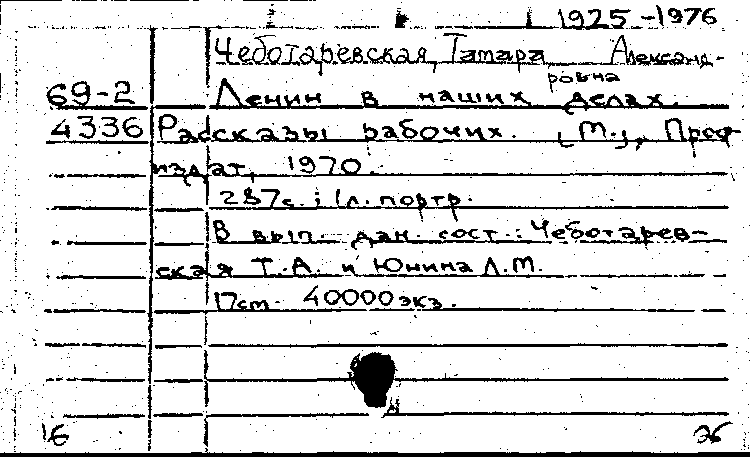 1925-1976
Чеботаревская, Тамара Александ-
ровна
69-2 Ленин в наших делах.
4336 Рассказы рабочих. [М.], Проф-
издат, 1970.
287с.; 1л. портр.
В вып. дан. сост.: Чеботарев-
ская Т.А. и Юнина Л.М.
17см. 40000экз.
16